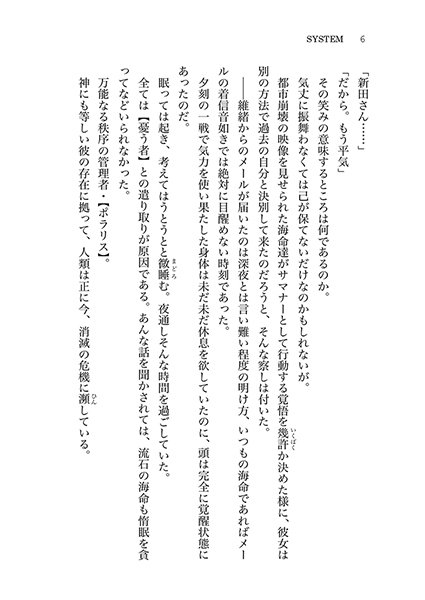 SYSTEM 6
「新田さん……」
「だから。もう平気」
その笑みの意味するところは何であるのか。
気丈に振舞わなくては己が保てないだけなのかもしれないが。
都市崩壊の映像を見せられた海命達がサマナーとして行動する覚悟を幾許か決めた様に、彼女は
別の方法で過去の自分と決別して来たのだろうと、そんな察しは付いた。
――維緒からのメールが届いたのは深夜とは言い難い程度の明け方、いつもの海命であればメー
ルの着信音如きでは絶対に目醒めない時刻であった。
夕刻の一戦で気力を使い果たした身体は未だ未だ休息を欲していたのに、頭は完全に覚醒状態に
あったのだ。
眠っては起き、考えてはうとうとと微睡む。夜通しそんな時間を過ごしていた。
全ては【憂う者】との遣り取りが原因である。あんな話を聞かされては、流石の海命も惰眠を貪
ってなどいられなかった。
万能なる秩序の管理者・【ポラリス】。
神にも等しい彼の存在に拠って、人類は正に今、消滅の危機に瀕している。